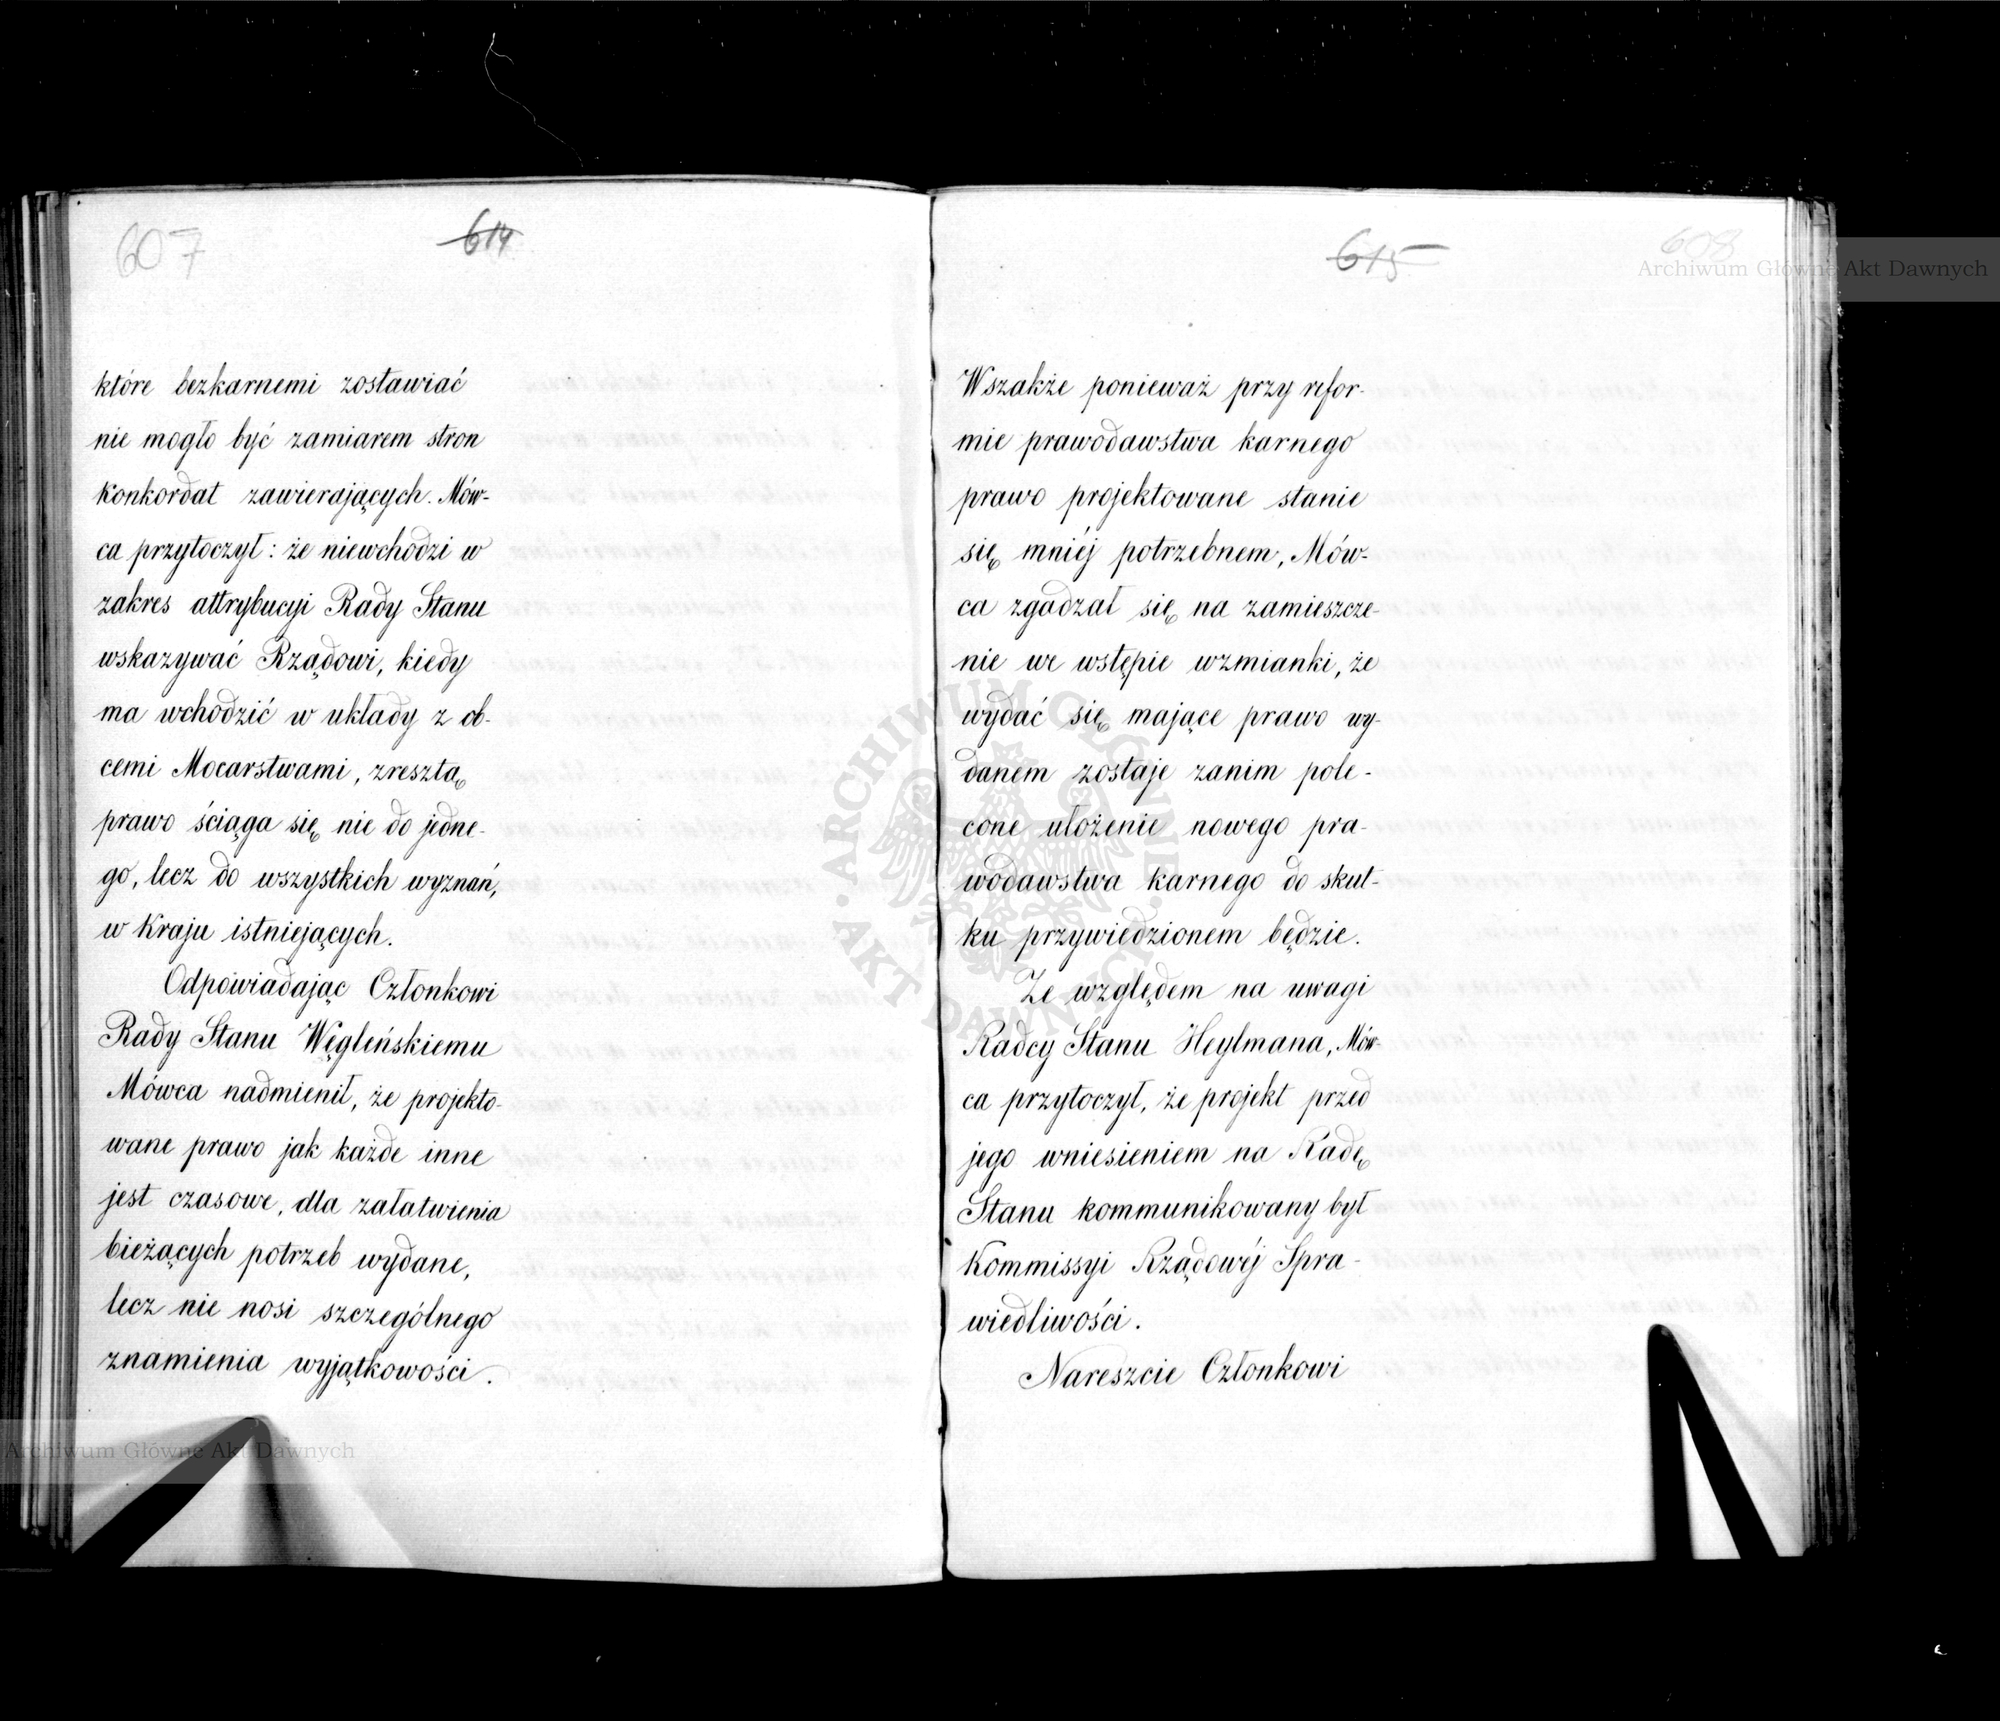 607
614
które bezkarnemi zostawiać
nie mogło być zamiarem stron
konkordat zawierających. Mów-
ca przytoczył: że niewchodzi w
zakres attrybucyi Rady Stanu
wskazywać Rządowi, kiedy
ma wchodzić w układy z ob-
cemi Mocarstwami, zresztą
prawo ściąga się nie do jedne-
go, lecz do wszystkich wyznań,
w Kraju istniejących.
Odpowiadając Członkowi
Rady Stanu Węgleńskiemu
Mówca nadmienił, że projekto-
wane prawo jak każde inne
jest czasowe, dla załatwienia
bieżących potrzeb wydane,
lecz nie nosi szczególnego
znamienia wyjątkowości.
615
608
Wszakże ponieważ przy refor-
mie prawodawstwa karnego
prawo projektowane stanie
się mniéj potrzebnem, Mów-
ca zgadzał się na zamieszcze-
nie we wstępie wzmianki, że
wydać się mające prawo wy-
danem zostaje zanim pole-
cone ułożenie nowego pra-
wodawstwa karnego do skut-
ku przywiedzionem będzie.
Ze względem na uwagi
Radcy Stanu Heylmana, Mów-
ca przytoczył, że projekt przed
jego wniesieniem na Radę
Stanu kommunikowany był
Kommissyi Rządowéj Spra-
wiedliwości.
Nareszcie Członkowi
Archiwum Główne Akt Dawnych
Archiwum Główne Akt Dawnych
ARCHIWUM GŁÓWNE AKT DAWNYCH